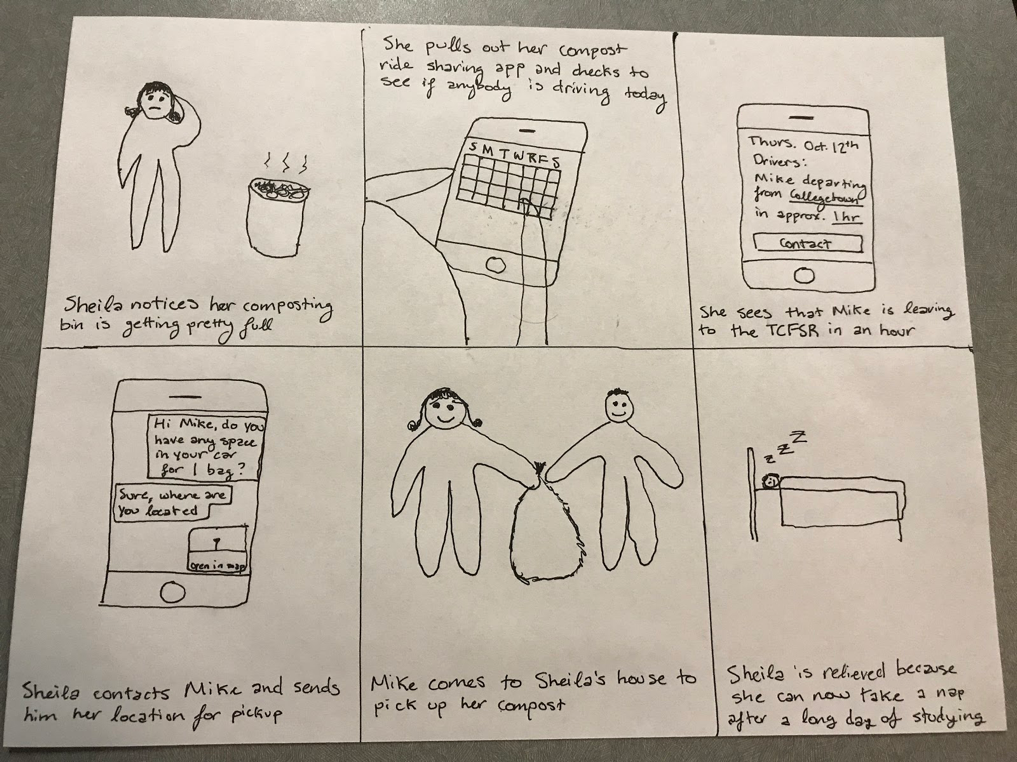 Sheila notices her composting
bin is getting pretty full
She pulls out her compost
ride sharing app and checks to
see if anybody is driving today
S M T W R F S
Thurs. Oct. 12th
Drivers:
Mike departing
from Collegetown
in approx. 1hr
Contact
She sees that Mike is leaving
to the TCFSR in an hour
Hi Mike, do you
have any space
in your car
for 1 bag?
Sure, where are
you located
open in map
Sheila contacts Mike and sends
him her location for pickup
Mike comes to Sheila's house to
pick up her compost
z z Z
Sheila is relieved because
she can now take a nap
after a long day of studying